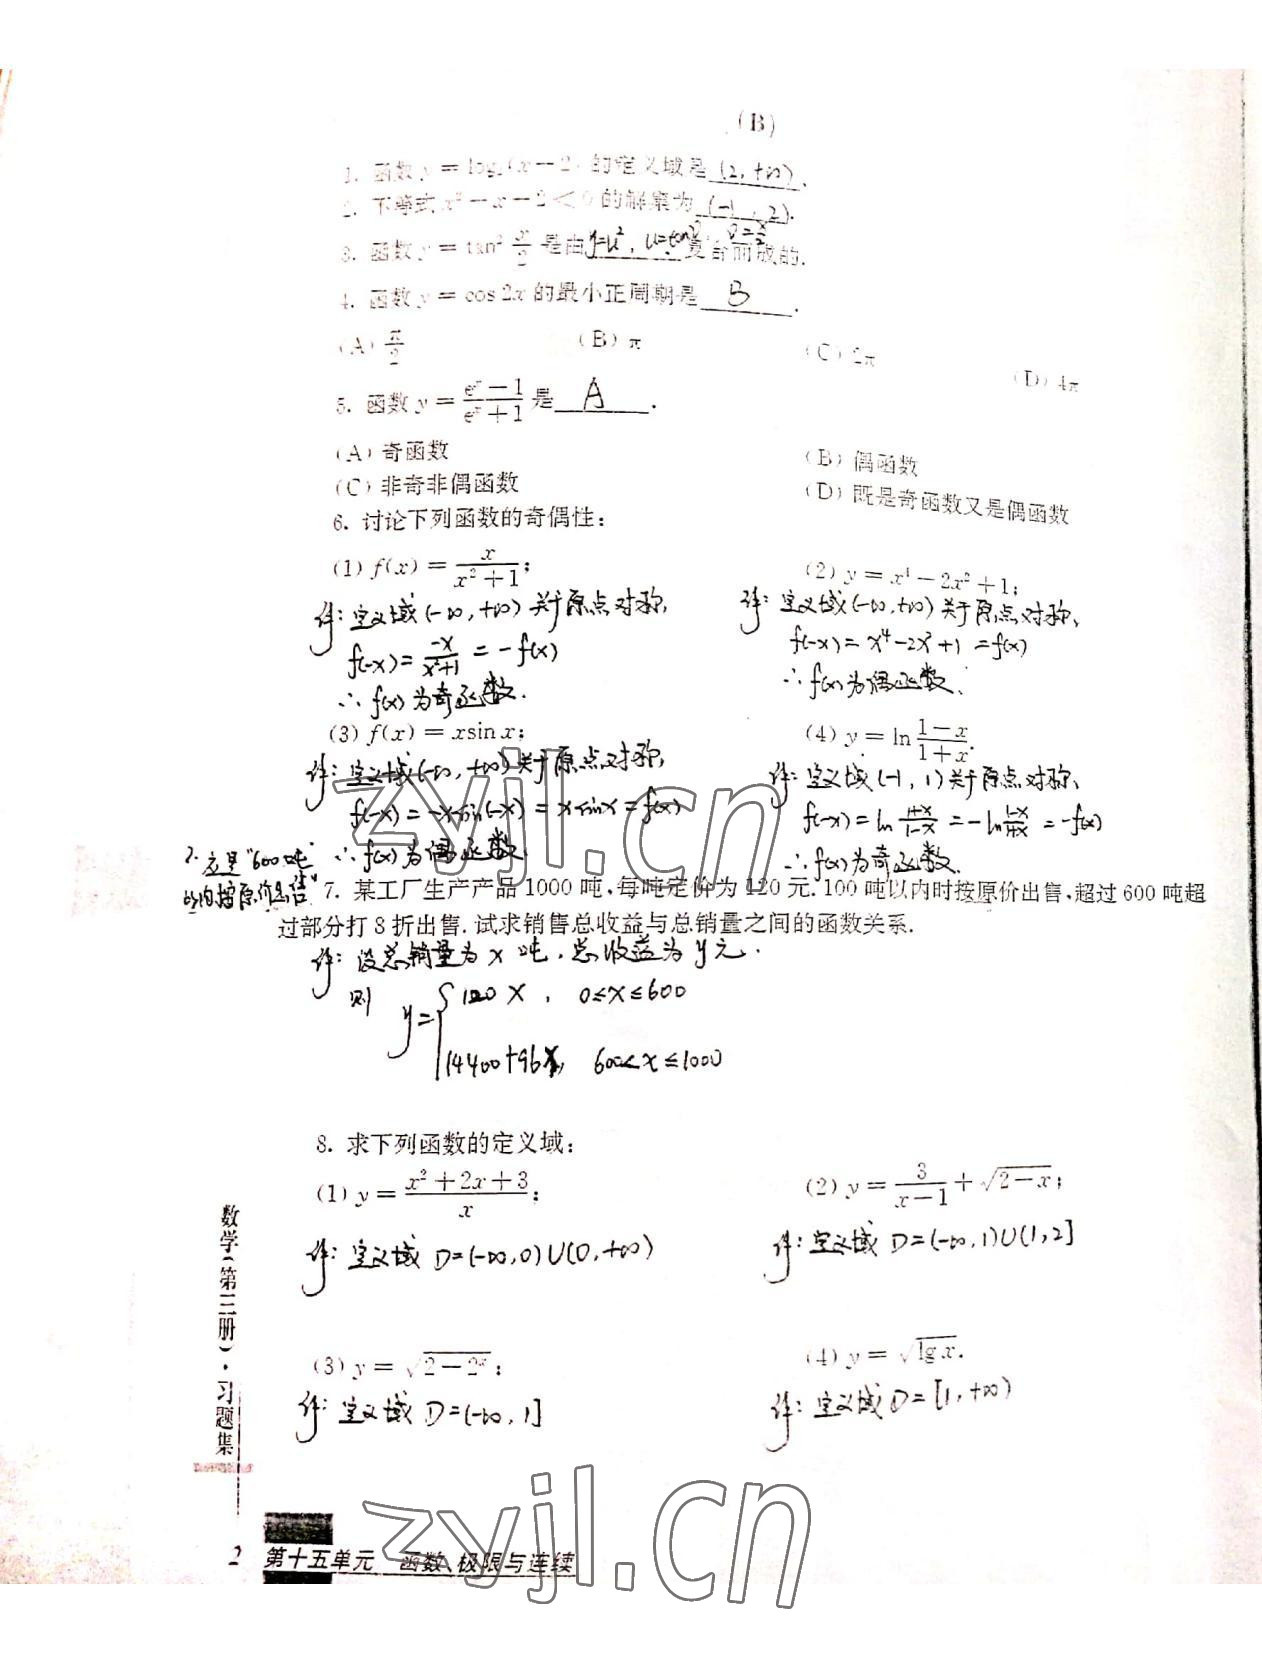 (B)
1. 函数 y = log₂(x − 2) 的定义域是 (2, +∞).
2. 不等式 x² − x − 2 < 0 的解集为 (−1, 2).
3. 函数 y = tan² x/2 是由 y=u², u=tanv, v=x/2 复合而成的.
4. 函数 y = cos 2x 的最小正周期是 B .
(A) π/2 (B) π (C) 2π (D) 4π
5. 函数 y = (eˣ − 1)/(eˣ + 1) 是 A .
(A) 奇函数 (B) 偶函数
(C) 非奇非偶函数 (D) 既是奇函数又是偶函数
6. 讨论下列函数的奇偶性:
(1) f(x) = x/(x² + 1); (2) y = x⁴ − 2x² + 1;
解: 定义域(−∞, +∞) 关于原点对称, 解: 定义域(−∞, +∞) 关于原点对称,
f(−x) = −x/(x²+1) = −f(x) f(−x) = x⁴ − 2x² + 1 = f(x)
∴ f(x) 为奇函数. ∴ f(x) 为偶函数.
(3) f(x) = xsin x; (4) y = ln (1 − x)/(1 + x).
解: 定义域(−∞, +∞) 关于原点对称, 解: 定义域(−1, 1) 关于原点对称,
f(−x) = −xsin(−x) = xsinx = f(x) f(−x) = ln (1+x)/(1−x) = −ln (1−x)/(1+x) = −f(x)
∴ f(x) 为偶函数. ∴ f(x) 为奇函数.
7. 应是“600吨
以内按原价出售”
7. 某工厂生产产品 1000 吨, 每吨定价为 120 元. 100 吨以内时按原价出售, 超过 600 吨超
过部分打 8 折出售. 试求销售总收益与总销量之间的函数关系.
解: 设总销量为 x 吨, 总收益为 y 元.
则 y = { 120x, 0≤x≤600
14400+96x, 600<x≤1000
8. 求下列函数的定义域:
(1) y = (x² + 2x + 3)/x; (2) y = 3/(x − 1) + √(2 − x);
解: 定义域 D=(−∞,0)∪(0,+∞) 解: 定义域 D=(−∞,1)∪(1,2]
(3) y = √(2 − 2ˣ); (4) y = √(lg x).
解: 定义域 D=(−∞,1] 解: 定义域 D=[1,+∞)
数学(第三册)·习题集
2 第十五单元 函数、极限与连续
zyjl.cn
zyjl.cn